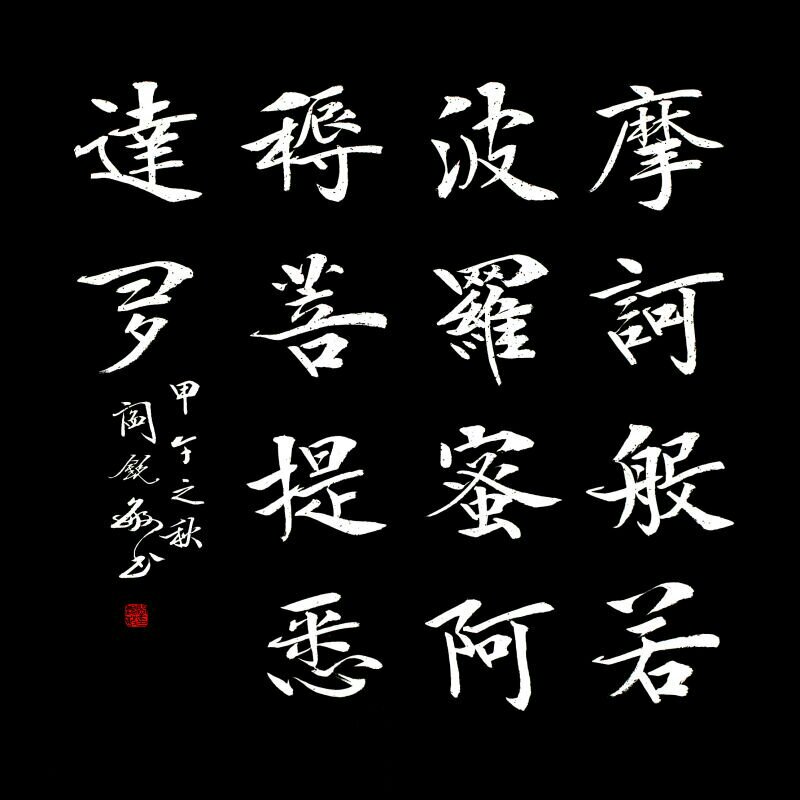 摩訶般若
波羅蜜阿
耨菩提悉
達多
甲午之秋
閻銳敏书